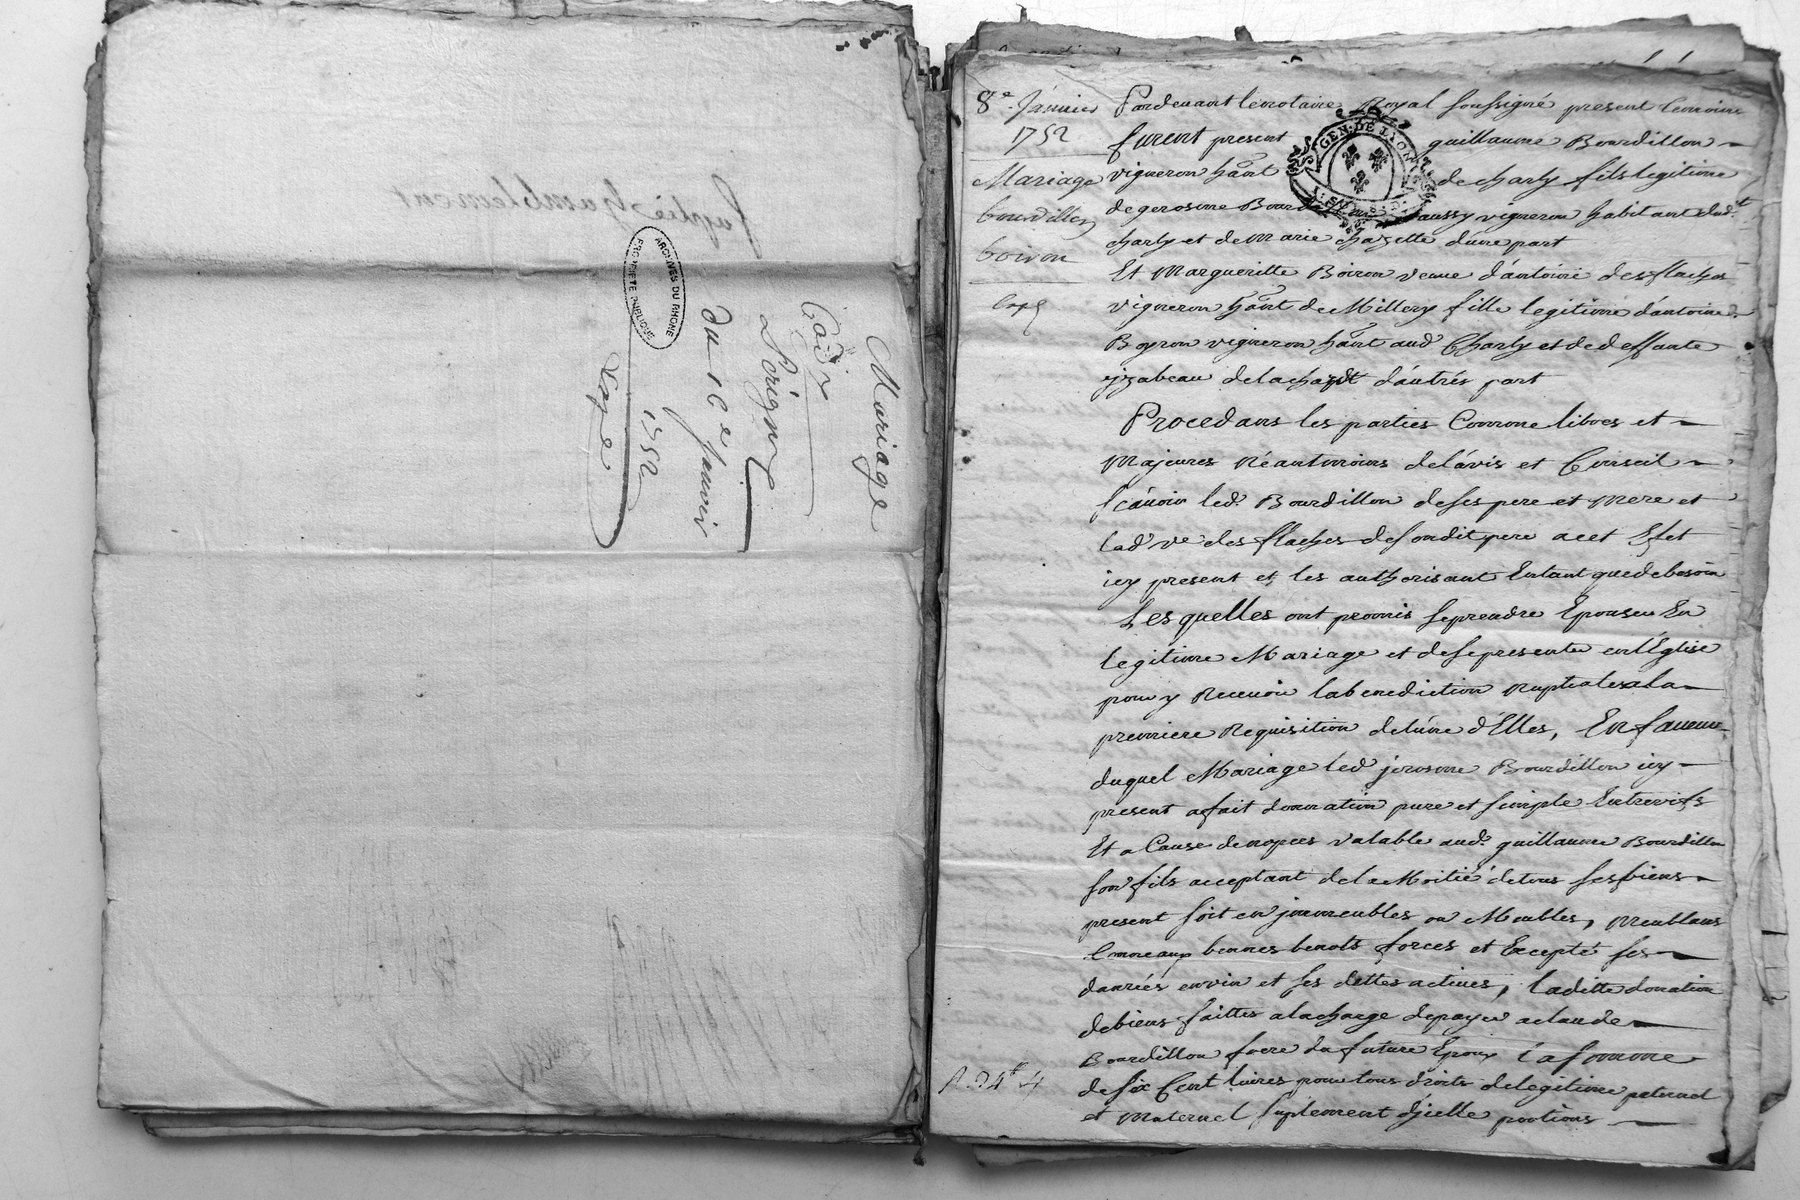 Mariage
Cadix
Perigny
du 10e Janvier
1752
Exp.é
ARCHIVES DU RHONE
PROPRIÉTÉ PUBLIQUE
8e. Janvier
1752
Mariage
bourdillon
boiron
Exp.é
GEN. DE LYON
Pardevant le notaire Royal soussigné present temoins
furent present guillaume Bourdillon
vigneron hant de charly fils legitime
de gerosme Bourdillon aussy vigneron habitant dud.t
charly et de Marie chazette d'une part
Et Margueritte Boiron veuve d'antoine desflaches
vigneron hant de Millery fille legitime d'antoine
Boyron vigneron hant aud Charly et de deffunte
yzabeau de la chazdt d'autres part
Procedans les parties Comme libres et
Majeures Néantmoins de l'avis et Conseil
sçavoir led. Bourdillon de ses pere et mere et
lad ve des flaches de sondit pere a cet Effet
icy present et les authorisant Entant que de besoin
Lesquelles ont promis se prendre Epouser En
legitime Mariage et de se presenter en l'Eglise
pour y Recevoir la benediction Nuptiales a la
premiere Requisition de l'une d'Elles, En faveur
duquel Mariage led jerosme Bourdillon icy
present a fait donnation pure et simple Entrevifs
Et a Cause de nopces valable aud. guillaume Bourdillon
son fils acceptant de la Moitié de tous ses biens
present soit en jmmeubles ou Meubles, meublans
bennes benots forces et Excepté ses
danrées en vin et ses dettes actives, ladite donnation
de biens faittes a la charge de payer a claude
Bourdillon frere du future Epoux la somme
de six Cent livres pour tous droits de legitime paternel
et maternel suplement d'jcelle portions